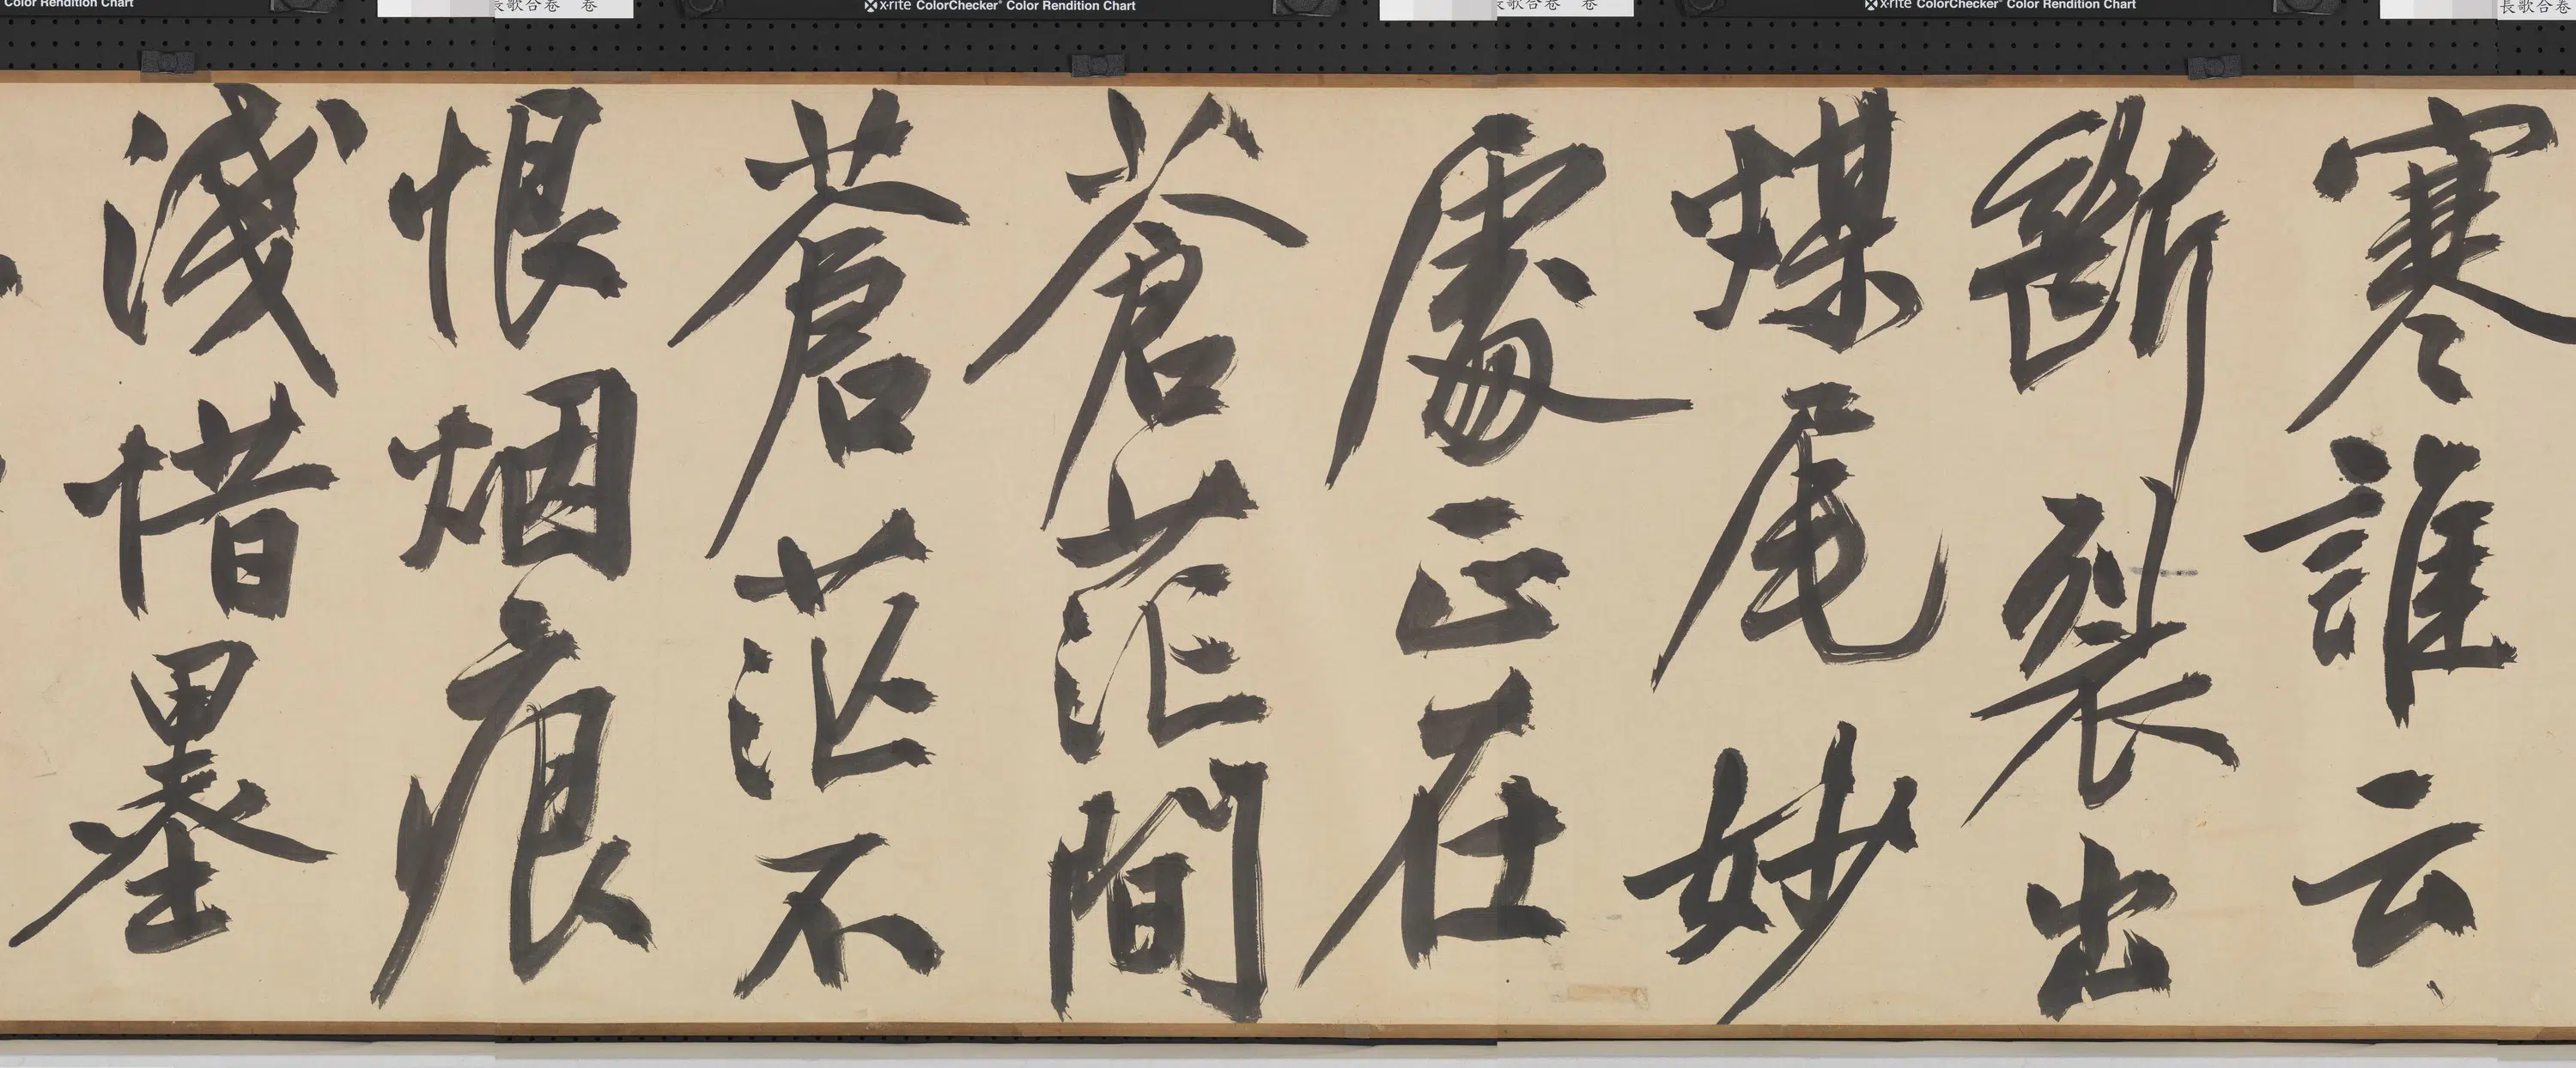 Color Rendition Chart
長歌合卷 卷
x-rite ColorChecker Color Rendition Chart
歌合卷 卷
x-rite ColorChecker Color Rendition Chart
長歌合卷
寒誰云
斷裂出
煤尾妙
處正在
蒼茫間
蒼茫不
恨烟痕
淺惜墨